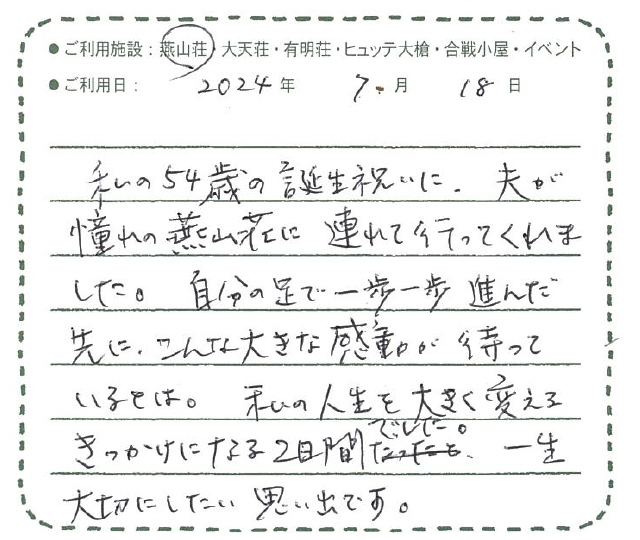 ● ご利用施設：燕山荘・大天荘・有明荘・ヒュッテ大槍・合戦小屋・イベント
● ご利用日： 2024年 7月 18日
私の54歳の誕生祝いに、夫が
憧れの燕山荘に連れて行ってくれま
した。自分の足で一歩一歩進んだ
先に、こんな大きな感動が待って
いるとは。私の人生を大きく変える
きっかけになる2日間でした。一生
大切にしたい思い出です。